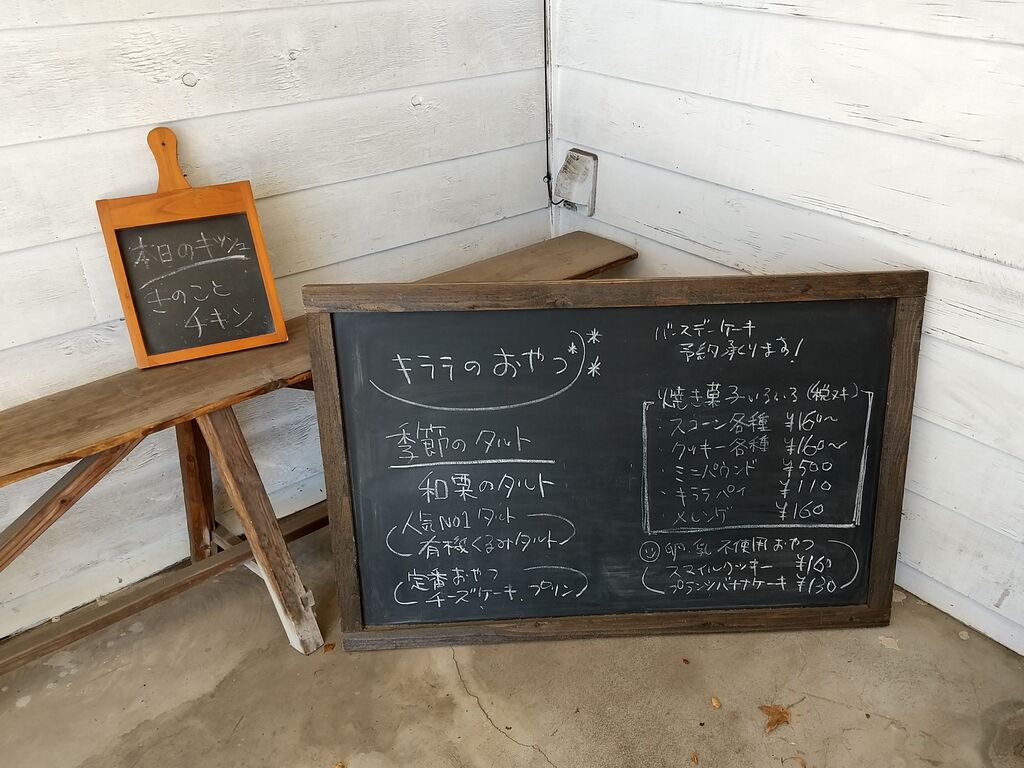 本日のキッシュ
きのこと
チキン
キララのおやつ
季節のタルト
和栗のタルト
人気NO1タルト
有機くるみタルト
定番おやつ
チーズケーキ、プリン
バースデーケーキ
予約承ります!
焼き菓子いろいろ(税ヌキ)
・スコーン各種 ¥160〜
・クッキー各種 ¥160〜
・ミニパウンド ¥500
・キララパイ ¥110
・メレンゲ ¥160
卵・乳不使用おやつ
スマイルクッキー ¥160
プランツバナナケーキ ¥130